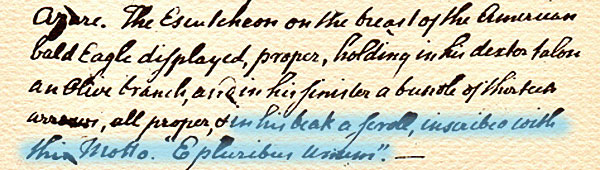 Azure. The Escutcheon on the breast of the American
bald Eagle displayed, proper, holding in his dexter talon
an Olive branch, and in his sinister a bundle of thirteen
arrows, all proper, & in his beak a scroll, inscribed with
this Motto. "E pluribus unum".—